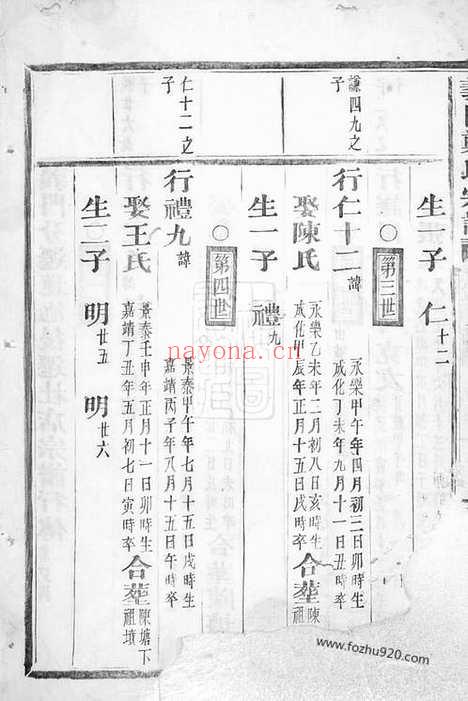 生一子 仁十二
○ 第三世
謙四九之子
行仁十二諱 永樂甲午年四月初三日卯時生 成化丁未年九月十一日丑時卒
娶陳氏 永樂乙未年二月初八日亥時生 成化甲辰年正月十五日戌時卒 合塟陳祖
生一子 禮九
○ 第四世
仁十二之子
行禮九諱 景泰甲午年七月十五日戌時生 嘉靖丙子年八月十五日午時卒
娶王氏 景泰壬申年正月十一日卯時生 嘉靖丁丑年五月初七日寅時卒 合塟陳塘下祖墳
生二子 明廿五 明廿六
nayona.cn
www.fozhu920.com